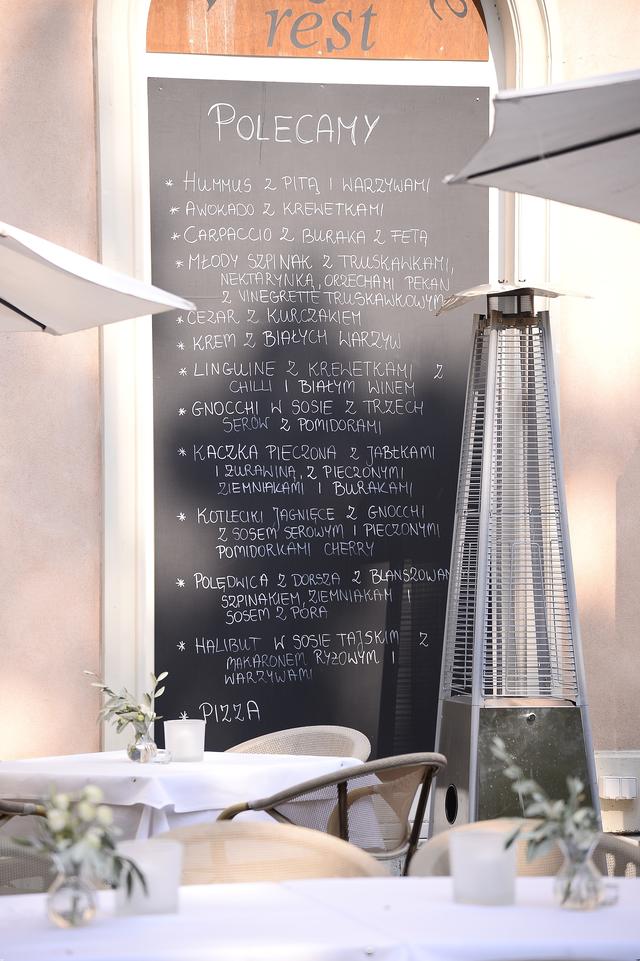 rest
POLECAMY
* HUMMUS Z PITĄ I WARZYWAMI
* AWOKADO Z KREWETKAMI
* CARPACCIO Z BURAKA Z FETĄ
* MŁODY SZPINAK Z TRUSKAWKAMI,
NEKTARYNKĄ, ORZECHAMI PEKAN
Z VINEGRETTE TRUSKAWKOWYM
* CEZAR Z KURCZAKIEM
* KREM Z BIAŁYCH WARZYW
* LINGUINE Z KREWETKAMI Z
CHILLI I BIAŁYM WINEM
* GNOCCHI W SOSIE Z TRZECH
SERÓW Z POMIDORAMI
* KACZKA PIECZONA Z JABŁKAMI
I ŻURAWINĄ, Z PIECZONYMI
ZIEMNIAKAMI I BURAKAMI
* KOTLECIKI JAGNIĘCE Z GNOCCHI
Z SOSEM SEROWYM I PIECZONYMI
POMIDORKAMI CHERRY
* POLĘDWICA Z DORSZA Z BLANSZOWAN
SZPINAKIEM, ZIEMNIAKAM I
SOSEM Z PORA
* HALIBUT W SOSIE TAJSKIM Z
MAKARONEM RYŻOWYM I
WARZYWAMI
* PIZZA